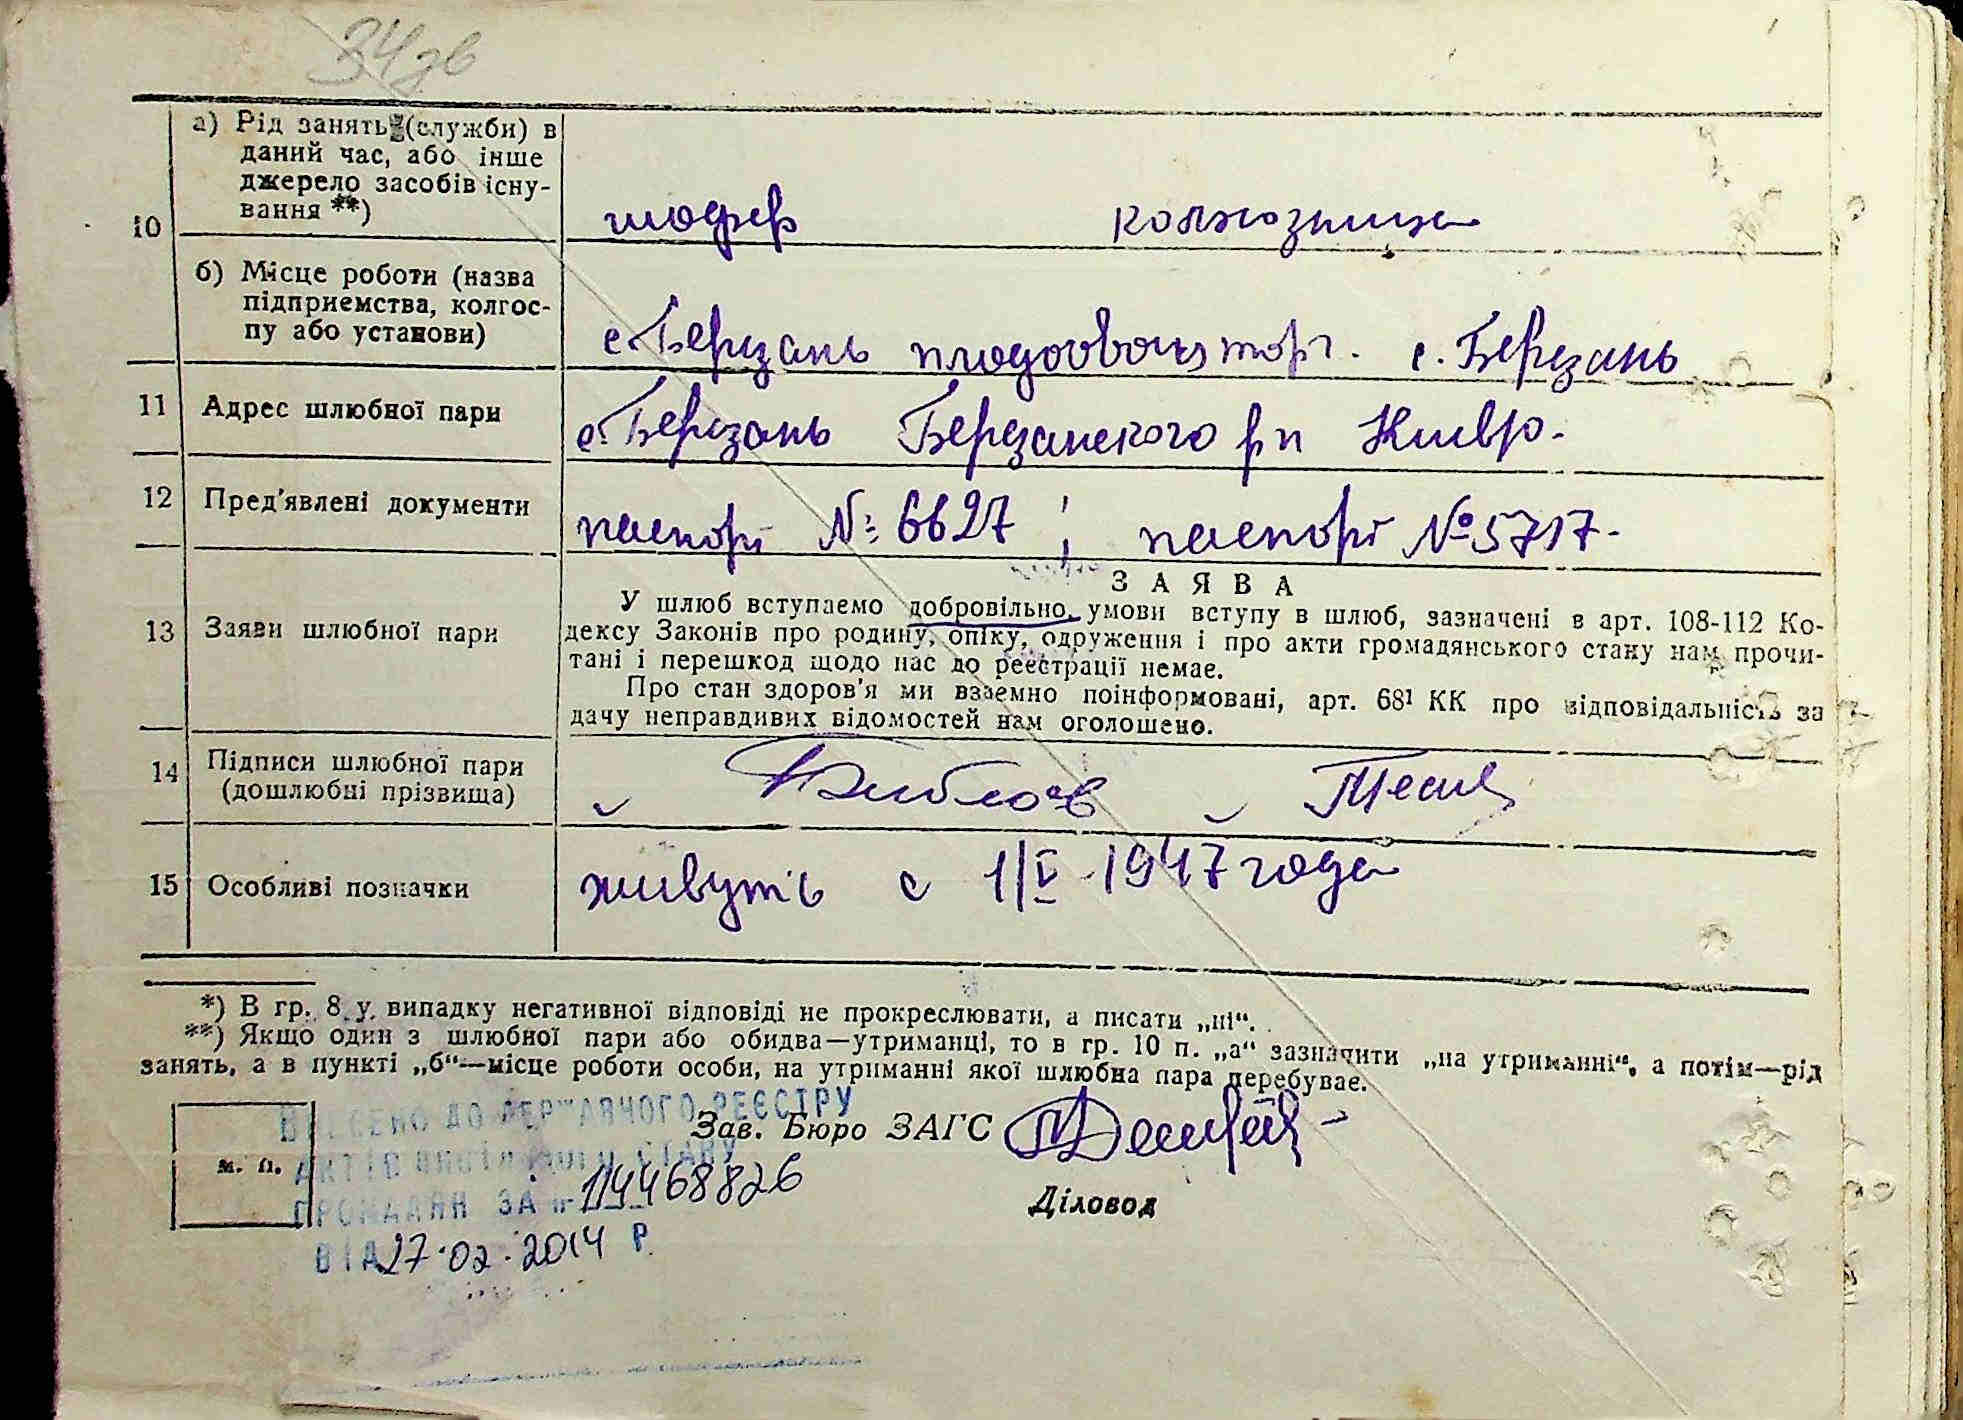 34зв
10 а) Рід занять (служби) в
даний час, або інше
джерело засобів існу-
вання **)
шофер колхозница
б) Місце роботи (назва
підприємства, колгос-
пу або установи)
с. Березань плодоовощторг. с. Березань
11 Адрес шлюбної пари
с. Березань Березанского р-н Киевс.
12 Пред'явлені документи
паспорт № 6627 ; паспорт № 5717.
13 Заяви шлюбної пари
ЗАЯВА
У шлюб вступаємо добровільно, умови вступу в шлюб, зазначені в арт. 108-112 Ко-
дексу Законів про родину, опіку, одруження і про акти громадянського стану нам прочи-
тані і перешкод щодо нас до реєстрації немає.
Про стан здоров'я ми взаємно поінформовані, арт. 68¹ КК про відповідальність за
дачу неправдивих відомостей нам оголошено.
14 Підписи шлюбної пари
(дошлюбні прізвища)
15 Особливі позначки
живуть с 1/V 1947 года
*) В гр. 8 у випадку негативної відповіді не прокреслювати, а писати „ні“.
**) Якщо один з шлюбної пари або обидва—утриманці, то в гр. 10 п. „а“ зазначити „на утриманні“, а потім—рід
занять, а в пункті „б“—місце роботи особи, на утриманні якої шлюбна пара перебуває.
ВНЕСЕНО ДО ДЕРЖАВНОГО РЕЄСТРУ
Зав. Бюро ЗАГС
АКТІВ ЦИВІЛЬНОГО СТАНУ
м. п.
ГРОМАДЯН ЗА № 114468826
Діловод
ВІД 27.02.2014 Р.